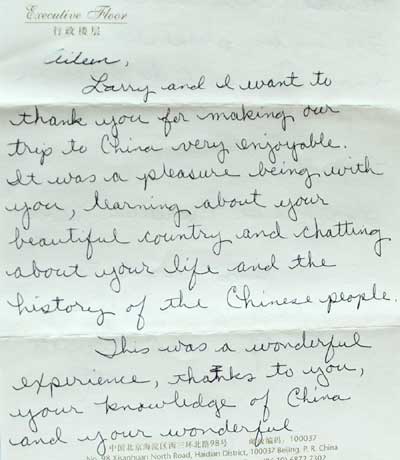 Executive Floor
行政楼层
Aileen,
Larry and I want to
thank you for making our
trip to China very enjoyable.
It was a pleasure being with
you, learning about your
beautiful country and chatting
about your life and the
history of the Chinese people.
This was a wonderful
experience, thanks to you,
your knowledge of China
中国北京海淀区西三环北路98号 邮政编码: 100037
and your wonderful
No. 98 Xisanhuan North Road, Haidian District, 100037 Beijing, P. R. China